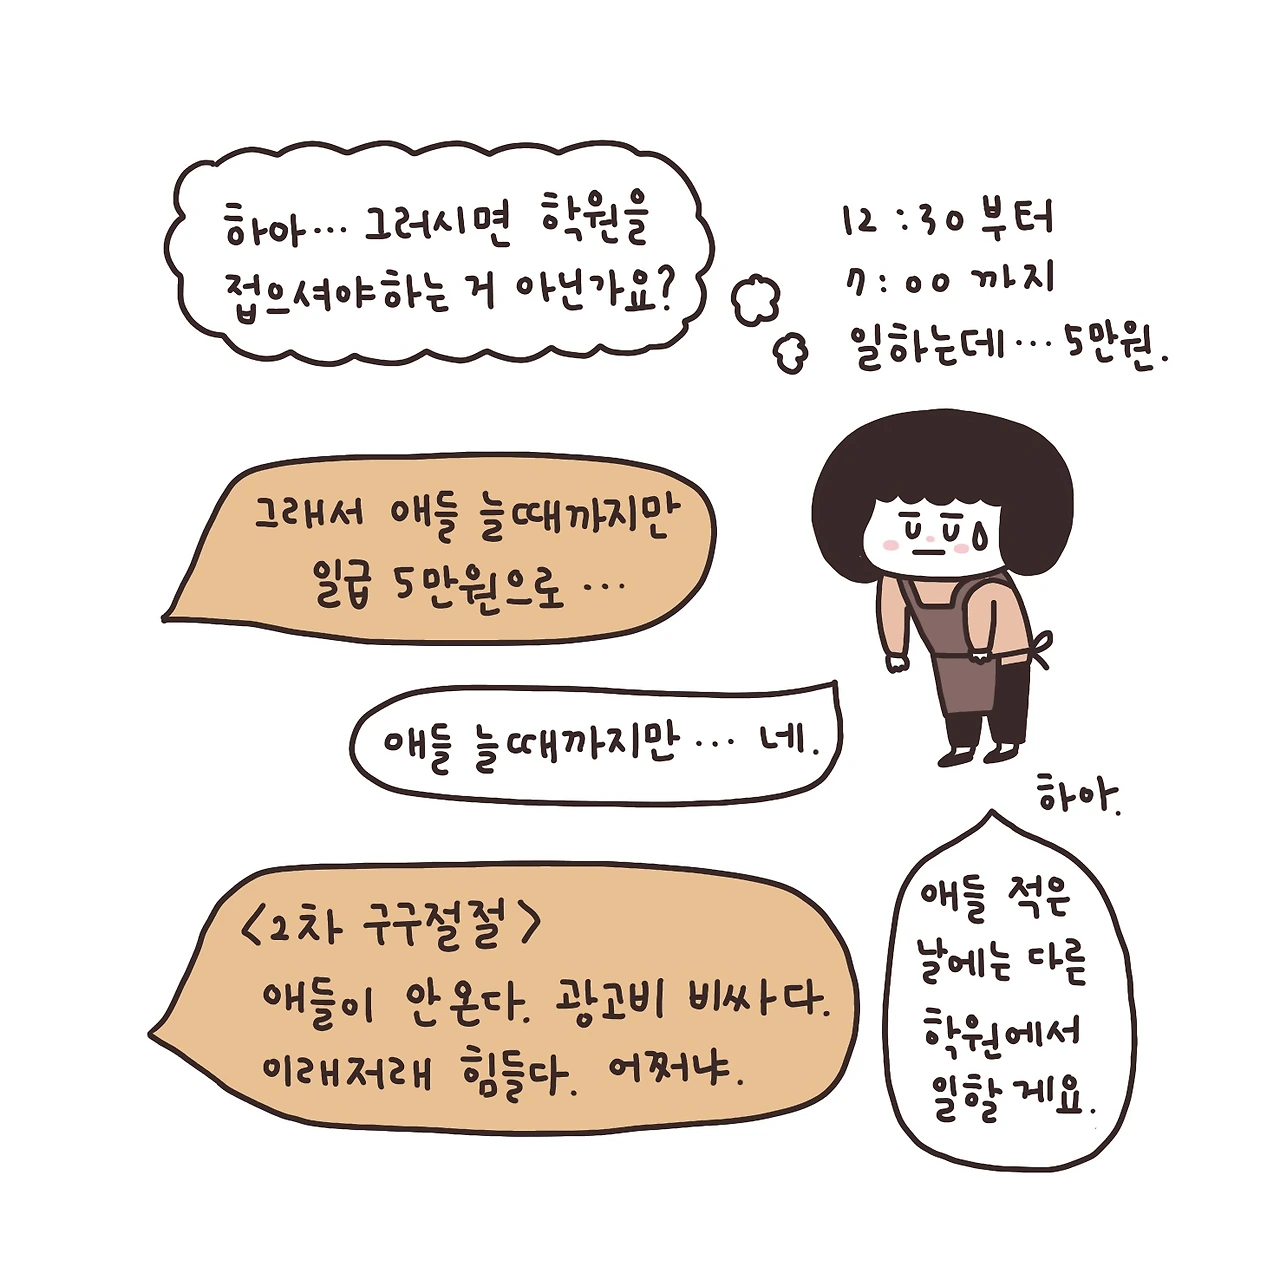 하아… 그러시면 학원을
접으셔야하는 거 아닌가요?
12:30부터
7:00까지
일하는데… 5만원.
그래서 애들 늘때까지만
일급 5만원으로…
애들 늘때까지만… 네.
하아.
<2차 구구절절>
애들이 안온다. 광고비 비싸다.
이래저래 힘들다. 어쩌냐.
애들 적은
날에는 다른
학원에서
일할게요.